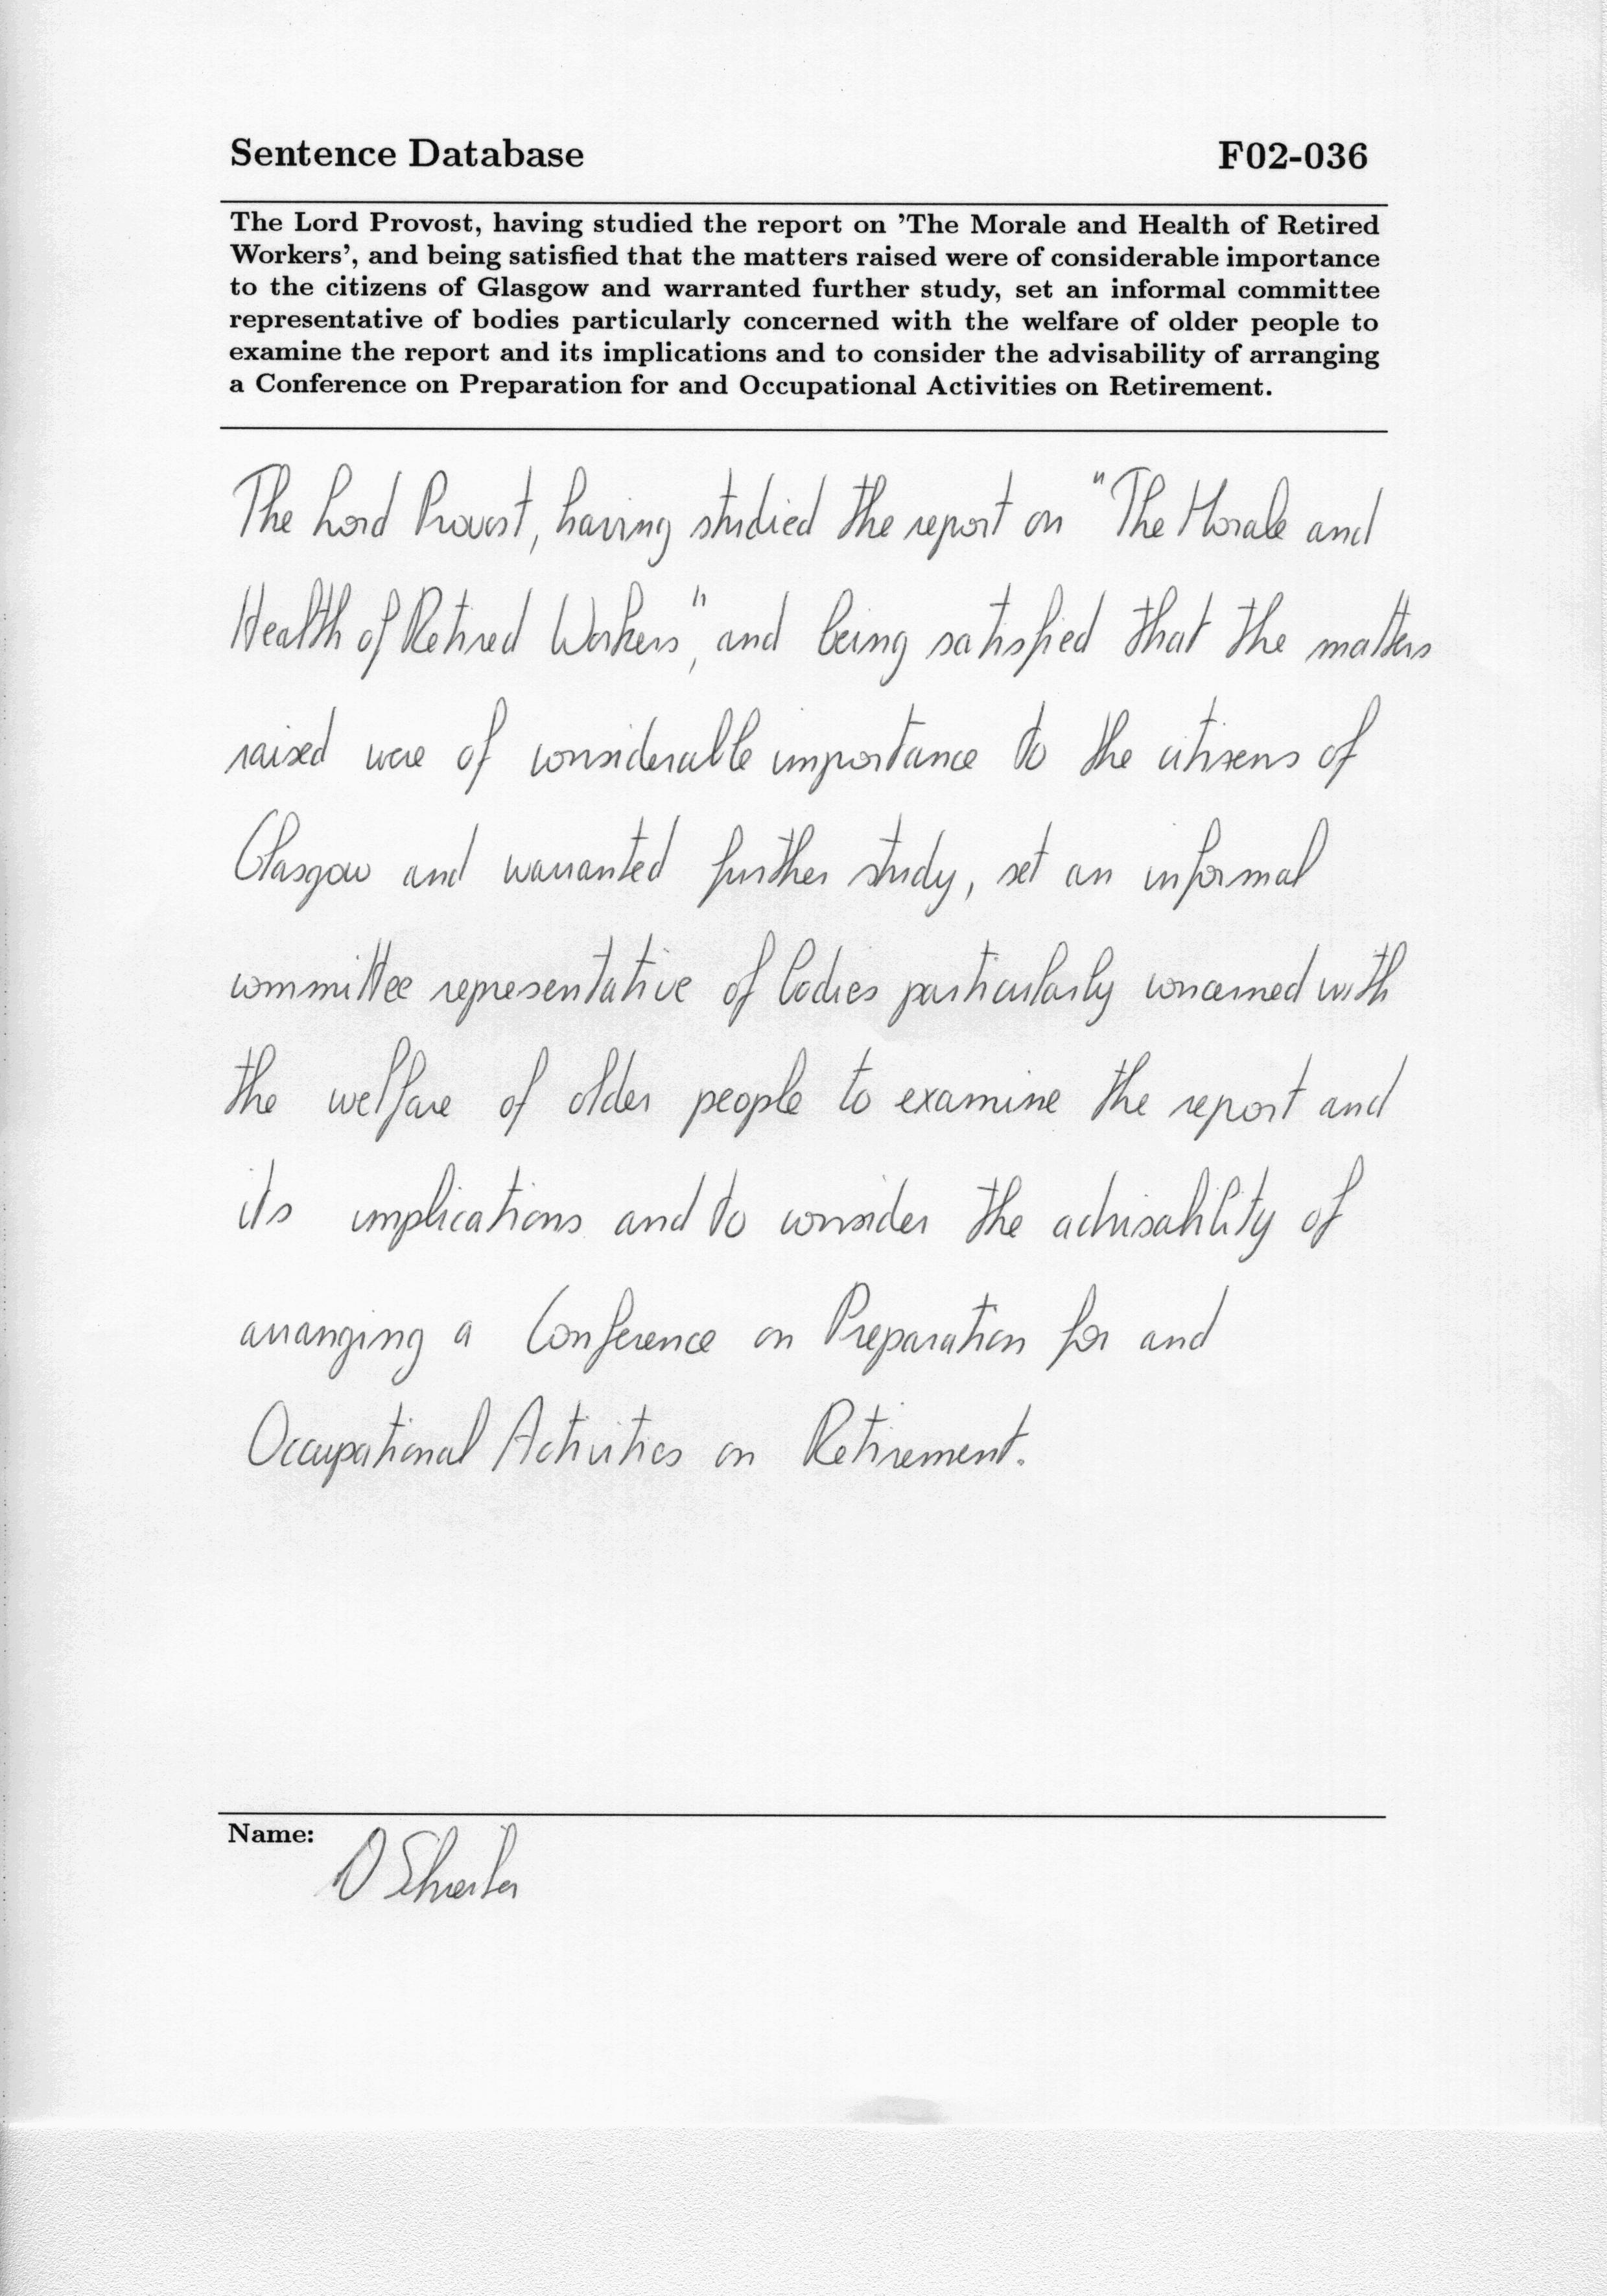 Sentence Database F02-036
The Lord Provost, having studied the report on 'The Morale and Health of Retired
Workers', and being satisfied that the matters raised were of considerable importance
to the citizens of Glasgow and warranted further study, set an informal committee
representative of bodies particularly concerned with the welfare of older people to
examine the report and its implications and to consider the advisability of arranging
a Conference on Preparation for and Occupational Activities on Retirement.
The Lord Provost, having studied the report on "The Morale and
Health of Retired Workers", and being satisfied that the matters
raised were of considerable importance to the citizens of
Glasgow and warranted further study, set an informal
committee representative of bodies particularly concerned with
the welfare of older people to examine the report and
its implications and to consider the advisability of
arranging a Conference on Preparation for and
Occupational Activities on Retirement.
Name:
D